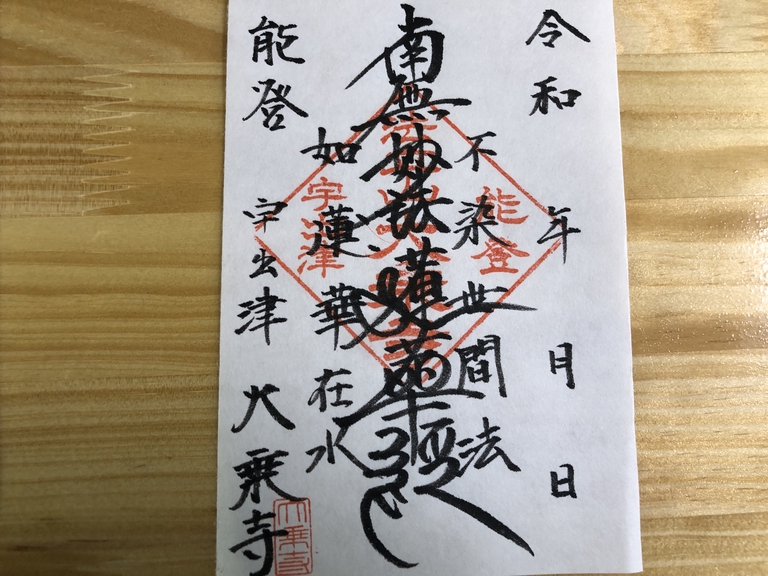 令和 年 月 日
不染世間法
南無妙法蓮華経
如蓮華在水
能登
宇出津 大乗寺
能登
宇出津
大乗寺